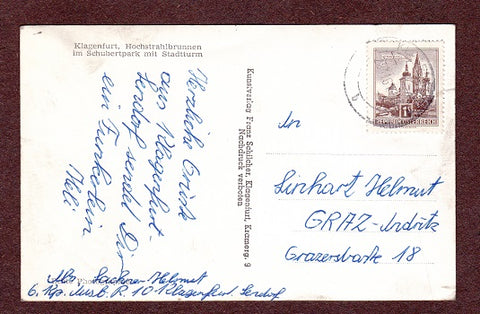 Klagenfurt, Hochstrahlbrunnen
im Schubertpark mit Stadtturm
Herzliche Grüße
aus Klagenfurt-
Lendorf sendet Dir
ein Funkerlein
Heli
Kunstverlag Franz Schilcher, Klagenfurt, Kramerg. 9
Nachdruck verboten
REPUBLIK ÖSTERREICH
An
Linhart Helmut
GRAZ-Andritz
Grazerstraße 18
Helmut
6. Kp. Ausb. R. 10 Klagenfurt. Lendorf